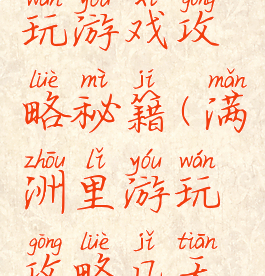 wán yóu xì gōng
玩游戏攻
lüè mì jí mǎn
略秘籍(满
zhōu lǐ yóu wán
洲里游玩
gōng lüè jǐ tiān
攻略几天